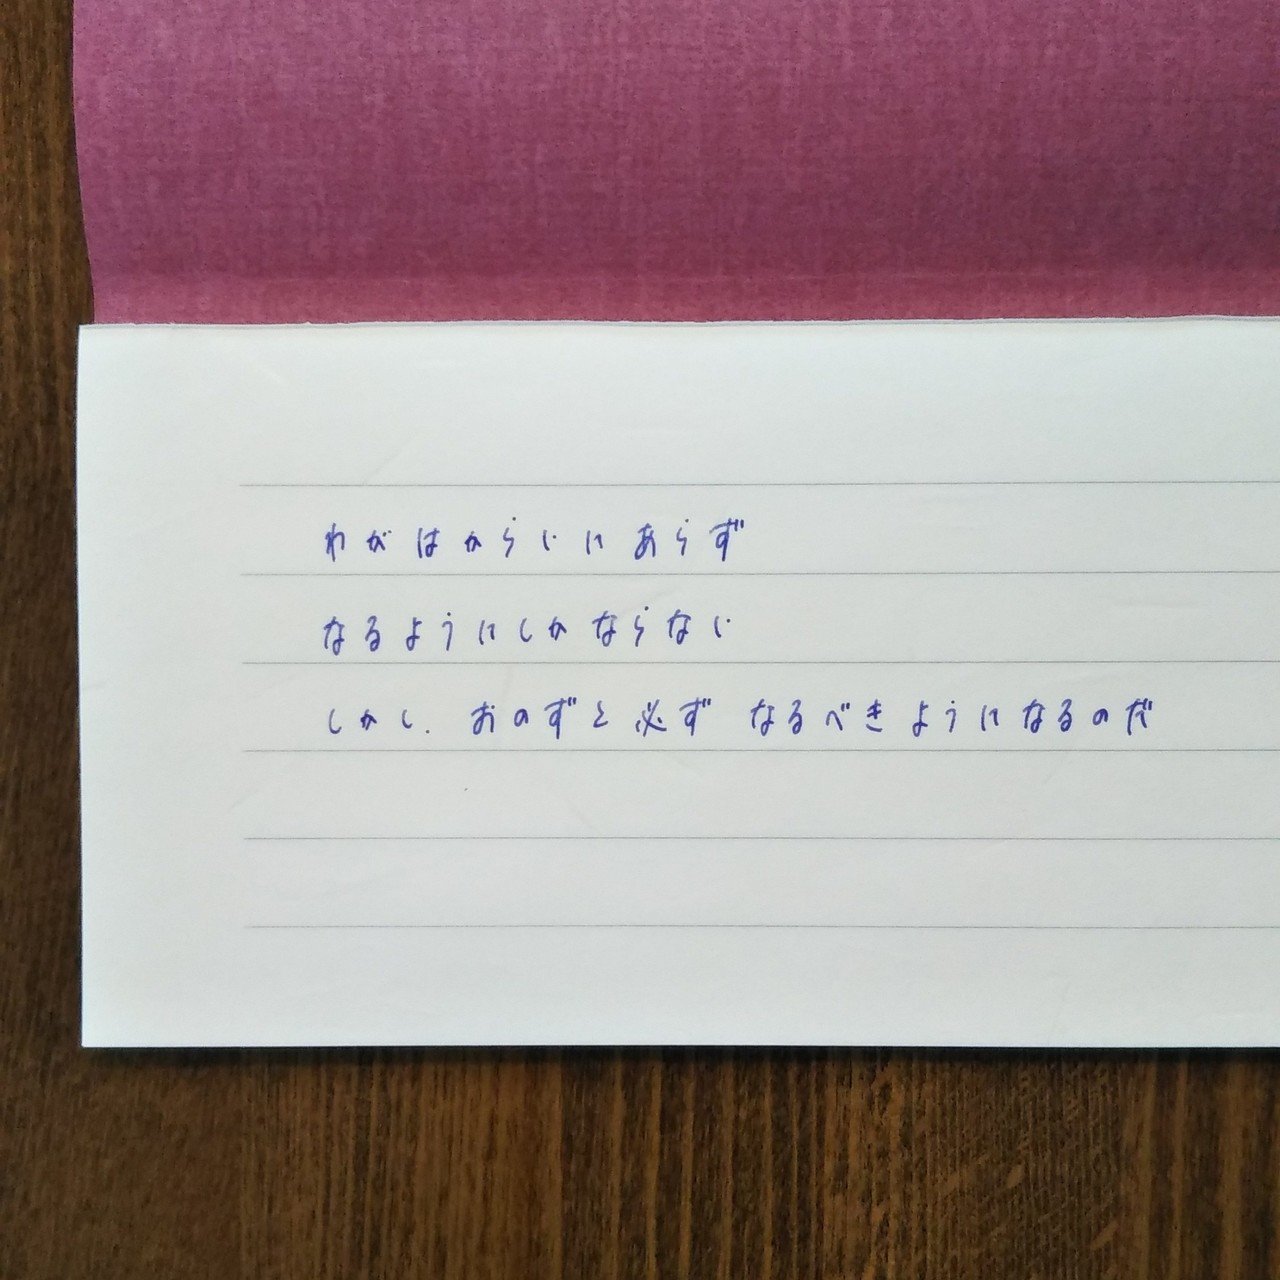 わがはからいにあらず
なるようにしかならない
しかし、おのずと必ず なるべきようになるのだ